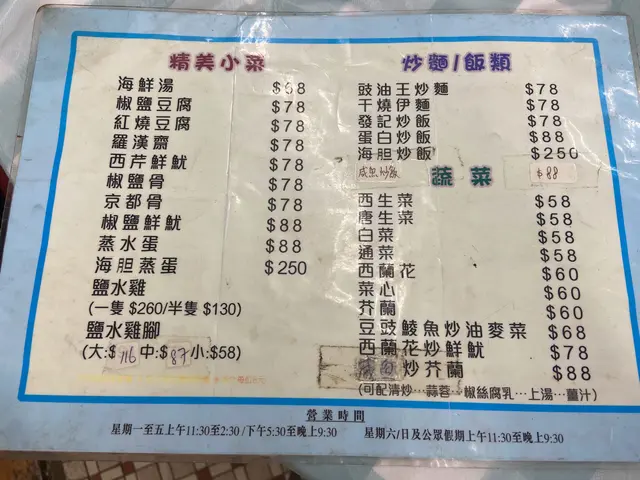 精美小菜
海鮮湯 $68
椒鹽豆腐 $78
紅燒豆腐 $78
羅漢齋 $78
西芹鮮魷 $78
椒鹽骨 $78
京都骨 $78
椒鹽鮮魷 $88
蒸水蛋 $88
海胆蒸蛋 $250
鹽水雞
(一隻 $260/半隻 $130)
鹽水雞腳
(大:$116 中:$87 小:$58)
炒麵/飯類
豉油王炒麵 $78
干燒伊麵 $78
發記炒飯 $78
蛋白炒飯 $88
海胆炒飯 $250
咸魚炒飯 $88
蔬菜
西生菜 $58
唐生菜 $58
白菜 $58
通菜 $58
西蘭花 $60
菜心 $60
芥蘭 $60
豆豉鯪魚炒油麥菜 $68
西蘭花炒鮮魷 $78
炒芥蘭 $88
(可配清炒…蒜蓉…椒絲腐乳…上湯…薑汁)
營業時間
星期一至五上午11:30至2:30/下午5:30至晚上9:30 星期六/日及公眾假期上午11:30至晚上9:30